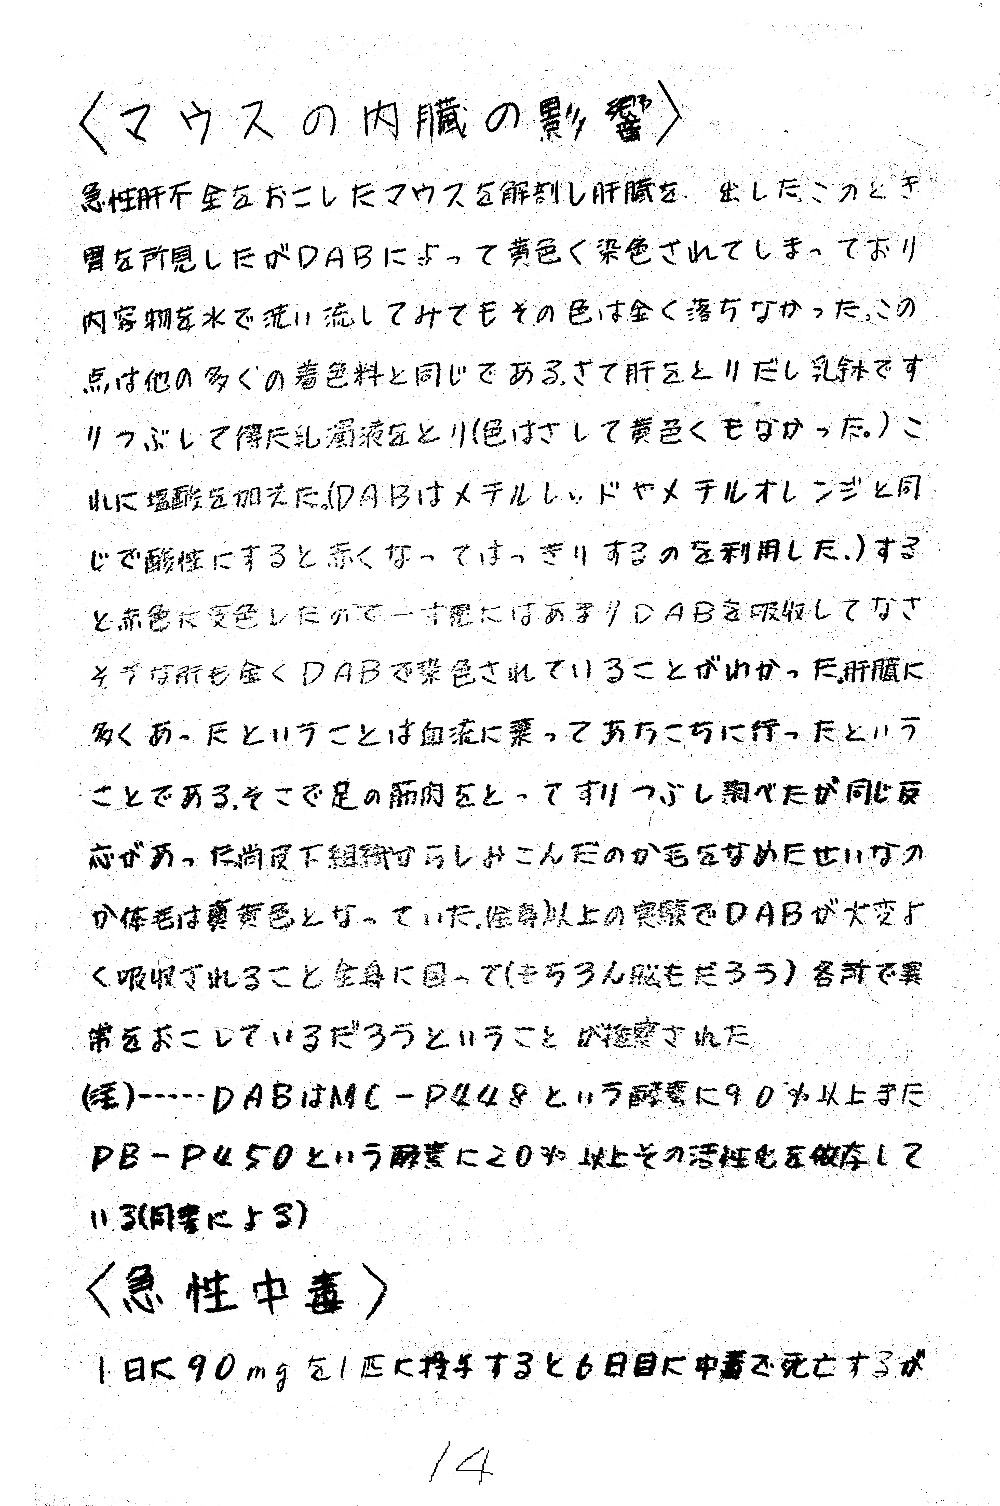 〈マウスの内臓の影響〉
急性肝不全をおこしたマウスを解剖し肝臓を 出した。このとき
胃を所見したがDABによって黄色く染色されてしまっており
内容物を水で洗い流してみてもその色は全く落ちなかった。この
点は他の多くの着色料と同じである。さて肝をとりだし乳鉢です
りつぶして得た乳濁液をとり(色はさして黄色くもなかった。)こ
れに塩酸を加えた。(DABはメチルレッドやメチルオレンジと同
じで酸性にすると赤くなってはっきりするのを利用した。)する
と赤色に変色したので一寸見にはあまりDABを吸収してなさ
そうな肝も全くDABで染色されていることがわかった。肝臓に
多くあったということは血流に乗ってあちこちに行ったという
ことである。そこで足の筋肉をとってすりつぶし調べたが同じ反
応があった。尚皮下組織からしみこんだのか毛をなめたせいなの
か体毛は真黄色となっていた。(全身)以上の実験でDABが大変よ
く吸収されること全身に回って(もちろん脳もだろう)各所で異
常をおこしているだろうということが推察された
(注)-----DABはMC-P448という酵素に90%以上また
PB-P450という酵素に20%以上その活性化を依存して
いる(同書による)
〈急性中毒〉
1日に90mgを1匹に投与すると6日目に中毒で死亡するが
14